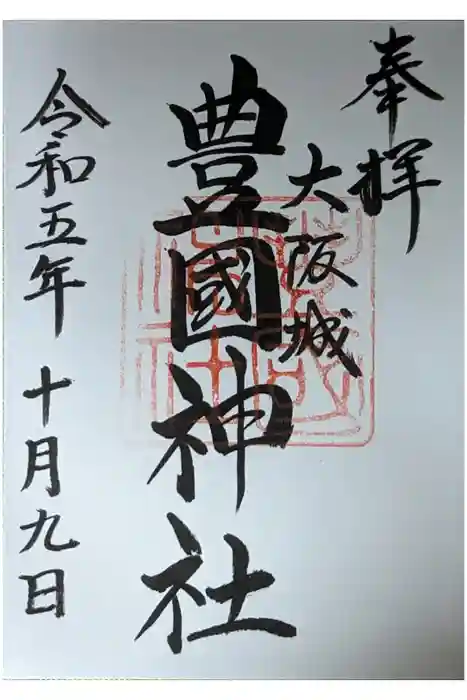 奉拝
大阪城
豊國神社
令和五年十月九日